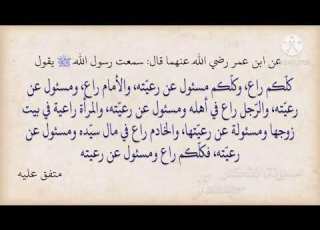 عن ابن عمر رضي الله عنهما قال: سمعت رسول الله ﷺ يقول
كلّكم راع، وكلّكم مسئول عن رعيّته، والأمام راع، ومسئول عن
رعيّته، والرّجل راع في أهله ومسئول عن رعيّته، والمرأة راعية في بيت
زوجها ومسئولة عن رعيّتها، والخادم راع في مال سيّده ومسئول عن
رعيّته، فكلّكم راع ومسئول عن رعيته
متفق عليه